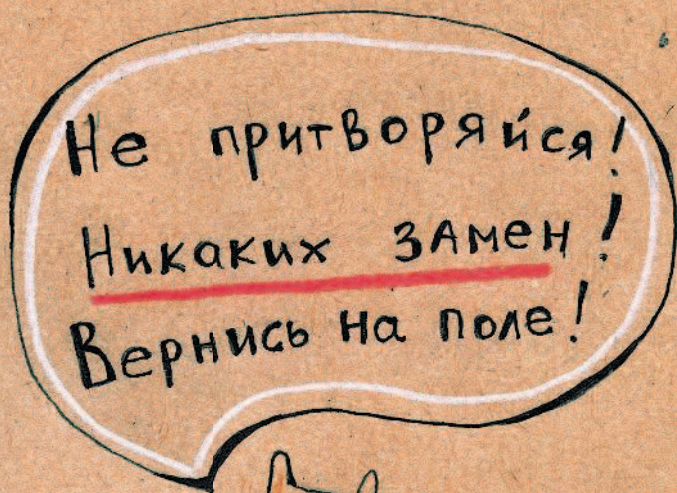 Не притворяйся!
Никаких замен!
Вернись на поле!